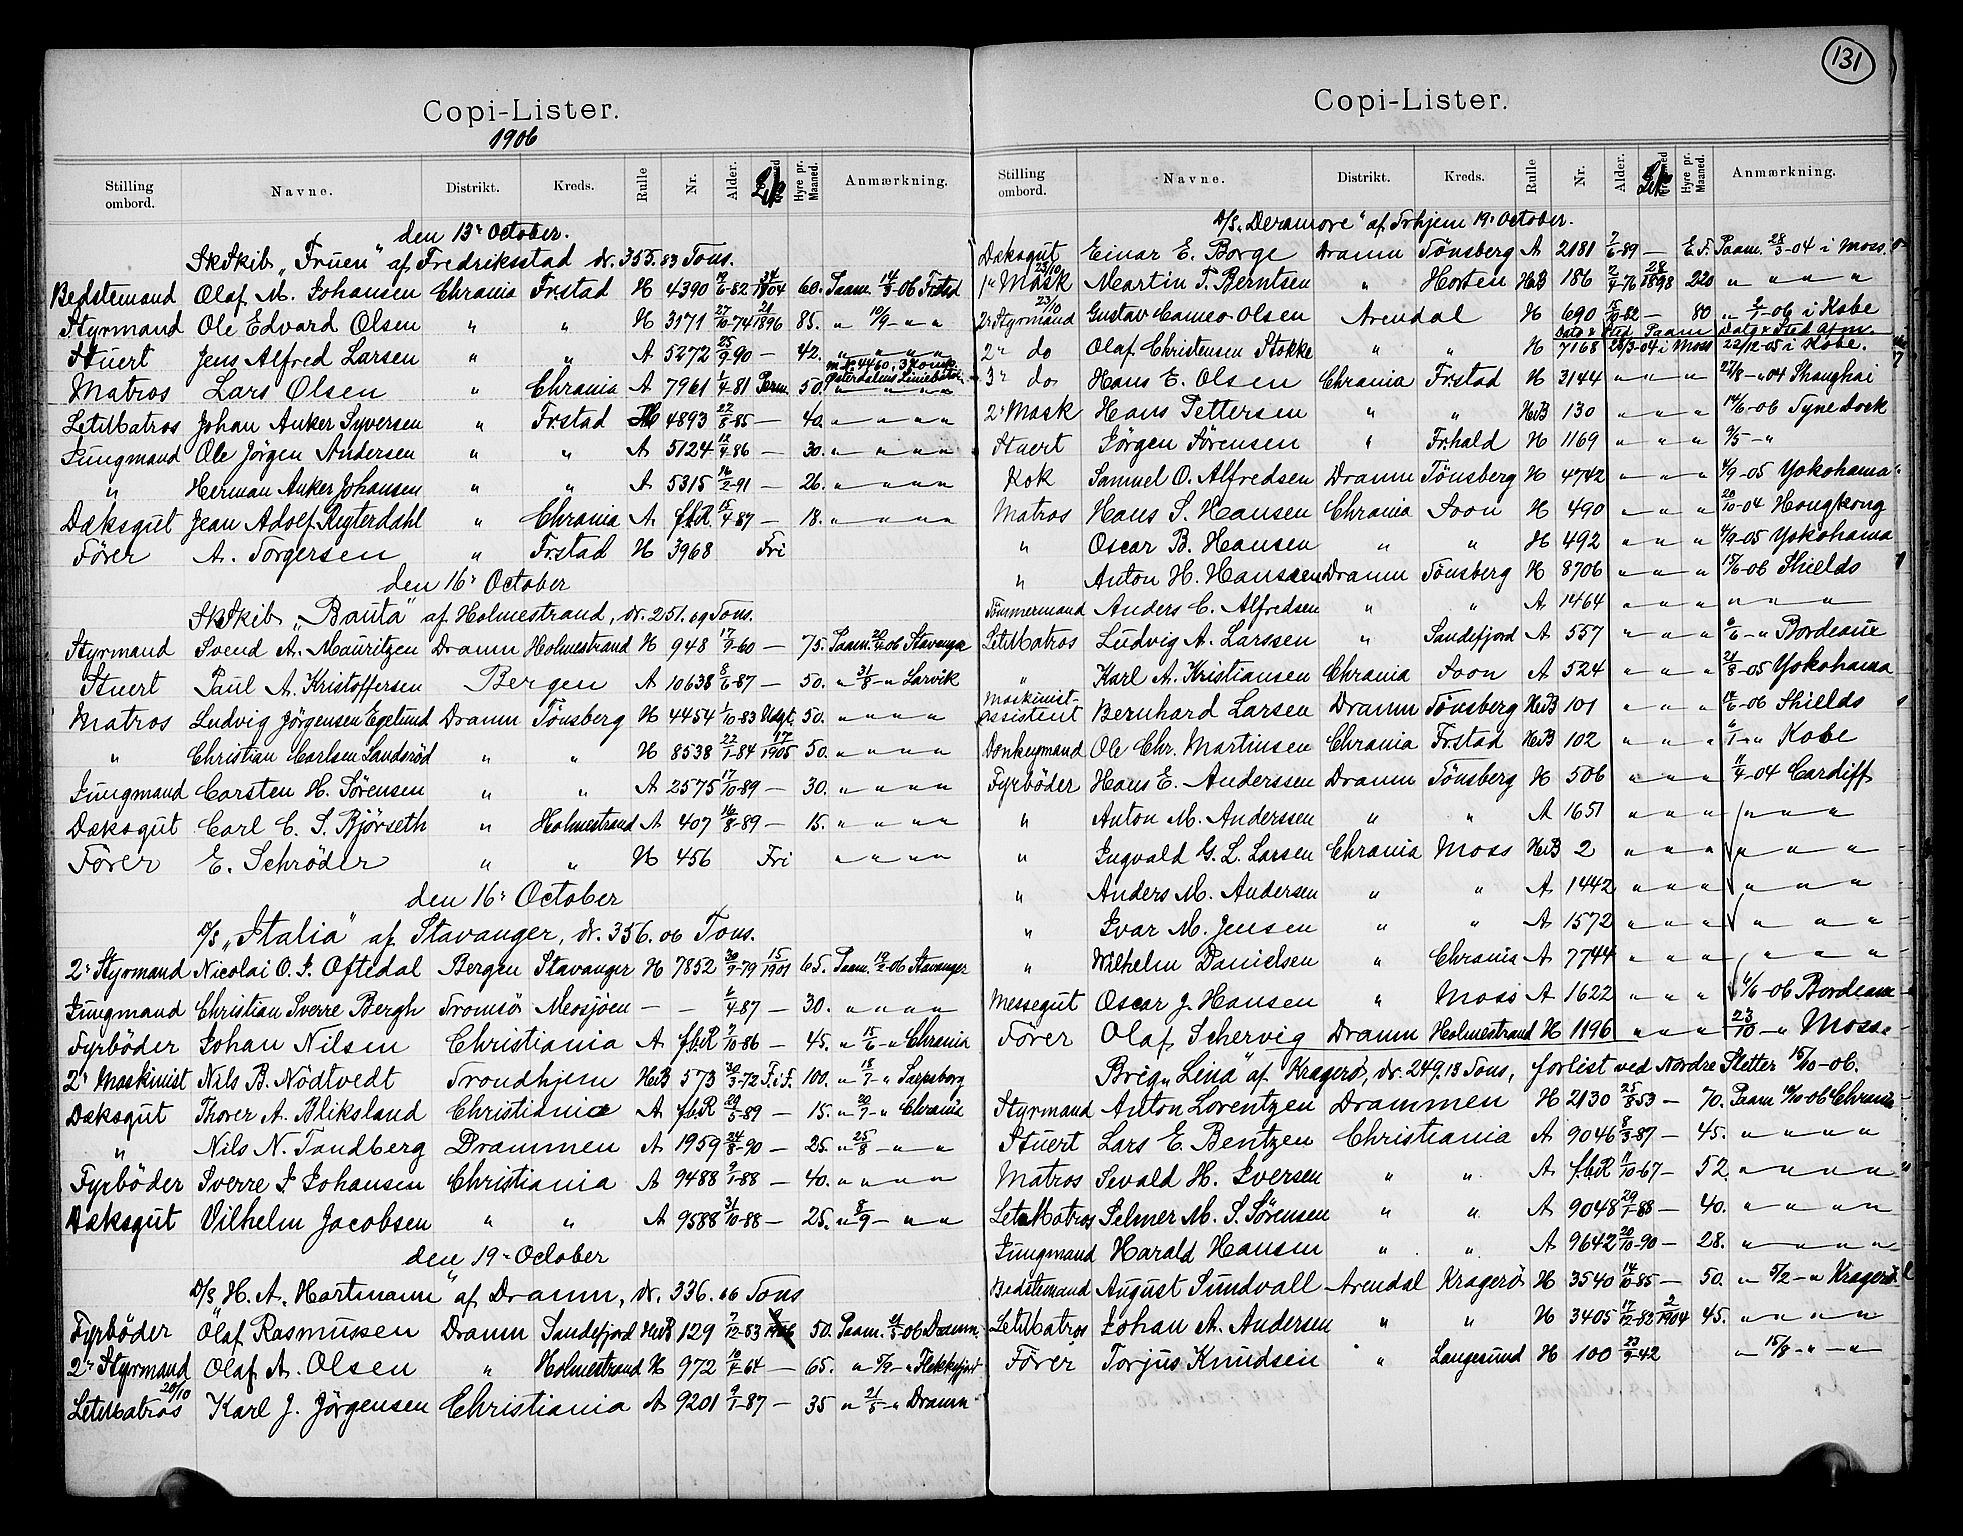 Copi-Lister.
1906
Stilling ombord. Navne. Distrikt. Kreds. Rulle Nr. Alder. Hyre pr. Maaned. Anmærkning.
den 13' October.
SkSkib „Fruen" af Fredriksstad dr. 355.83 Tons.
Bedstemand Olaf M. Johansen Chrania Fr.stad H 4390 12/6-82 1904 60. Paam. 14/3-06 Fr.stad
Styrmand Ole Edvard Olsen " " H 3171 27/10-74 21/1896 85. " 10/9 - " "
Stuert Jens Alfred Larsen " " A 5272 25/9-90 — 42. " " " "
Matros Lars Olsen " Chrania A 7961 1/4-81 Perm. 50. " " " "
LetMatros Johan Anker Syversen " Fr.stad 4893 27/8-85 — 40. " " " "
Jungmand Ole Jörgen Andersen " " A 5124 12/4-86 — 30. " " " "
" Herman Anker Johansen " " A 5315 16/2-91 — 26. " " " "
Dæksgut Jean Adolf Rygterdahl " Chrania A f.b.R. 15/4-87 — 18. " " " "
Förer A. Torgersen " Fr.stad H 3968 Fri
den 16' October
SkSkib „Bauta" af Holmestrand, dr. 251.69 Tons.
Styrmand Svend A. Mauritzen Dramn Holmestrand H 948 17/9-60 — 75. Paam. 20/4-06 Stavanger
Stuert Paul A. Kristoffersen Bergen A 10638 8/6-87 — 50. " 31/8 - " Larvik
Matros Ludvig Jörgensen Egelund Dramn Tönsberg H 4454 1/10-83 Udgt. 50. " " " "
" Christian Carlsen Sanderöd " " H 8538 22/1-84 17/1905 50. " " " "
Jungmand Carsten H. Sörensen " " A 2575 17/10-89 — 30. " " " "
Dæksgut Carl C. S. Björseth " Holmestrand A 407 16/8-89 — 15. " " " "
Förer E. Schröder " " H 456 Fri " " " "
den 16' October
D/S „Italia" af Stavanger, dr. 356.06 Tons.
2' Styrmand Nicolai O. J. Oftedal Bergen Stavanger H 7852 30/9-79 15/1901 65. Paam. 19/2-06 Stavanger
Jungmand Christian Sverre Bergh Tromsö Mosjöen — — 6/4-87 — 30. " " " "
Fyrböder Johan Nilsen Christiania A f.b.R 7/10-86 — 45. " 15/6 - " Chrania
2' Maskinist Nils B. Nödtvedt Trondhjem HvB 573 30/3-72 F.i.F. 100. " 18/7 - " Sarpsborg
Dæksgut Thorer A. Bliksland Christiania A f.b.R 29/5-89 — 15. " 20/7 - " Chrania
" Nils N. Tandberg Drammen A 1959 24/8-90 — 25. " 25/8 - " "
Fyrböder Sverre J Johansen Christiania A 9488 9/1-88 — 40. " " " "
Dæksgut Vilhelm Jacobsen " " A 9588 31/10-88 — 25. " 8/9 - " "
den 19' October
D/S „H. A. Hartmann" af Dramn, dr. 336.66 Tons
Fyrböder Olaf Rasmussen Dramn Sandefjord HvB 129 7/12-83 50. Paam. 21/5-06 Dramn.
2' Styrmand Olaf A. Olsen " Holmestrand H 972 10/4-64 — 65. " 5/9 - " Flekkefjord
20/10
LetMatros Karl J. Jörgensen Christiania A 9201 9/7-87 — 35 " 21/5 - " Dramn
131
Copi-Lister.
Stilling ombord. Navne. Distrikt. Kreds. Rulle Nr. Alder. Hyre pr. Maaned. Anmærkning.
D/S „Deramore" af Trhjem 19' October.
Dæksgut Einar E. Borge Dramn Tönsberg A 2181 7/6-89 — E.F. Paam. 28/3-04 i Moss.
23/10
1' Mask Martin T. Berntsen " Horten HvB 186 2/4-76 28/1898 220 " " " "
23/10
2' Styrmand Gustav Cameo Olsen Arendal H 690 15/10-82 — 80 " 2/7-06 i Kobe
Dato & Sted Paam Dato & Sted Afm.
2' do Olaf Christensen Stokke " " H 7168 28/3-04 i Moss 22/12-05 i Kobe.
3' do Hans E. Olsen Chrania Fr.stad H 3144 " " " 27/8 - 04 Shanghai
2' Mask Hans Pettersen " " HvB 130 " " " 14/6-06 Tyne dock
Stuert Jörgen Sörensen " Fr.hald H 1169 " " " 9/5 - "
Kok Samuel O. Alfredsen Dramn Tönsberg H 4742 " " " 4/9-05 Yokohama
Matros Hans S. Hansen Chrania Soon H 490 " " " 20/10-04 Hongkong
" Oscar B. Hansen " " H 492 " " " 4/9-05 Yokohama
" Anton H. Hanssen Dramn Tönsberg H 8706 " " " 15/6-06 Shields
Tömmermand Anders C. Alfredsen " " A 1464 " " " " " "
LetMatros Ludvig A. Larssen " Sandefjord A 557 " " " 6/6 - " Bordeaux
" Karl A. Kristiansen Chrania Soon A 524 " " " 21/8-05 Yokohama
Maskinist-
assistent Bernhard Larsen Dramn Tönsberg HvB 101 " " " 14/6-06 Shields
Donkeymand Ole Chr. Martinsen Chrania Fr.stad HvB 102 " " " 6/1 - " Kobe
Fyrböder Hans E. Anderssen Dramn Tönsberg H 506 " " " 11/4-04 Cardiff
" Anton M. Anderssen " " A 1651 " " " " " "
" Ingvald G. L. Larsen Chrania Moss HvB 2 " " " " " "
" Anders M. Andersen " " A 1442 " " " " " "
" Ivar M. Jensen " " A 1572 " " " " " "
" Wilhelm Danielsen " Chrania A 7744 " " " " " "
Messegut Oscar J. Hansen " Moss A 1622 " " " 6/6-06 Bordeaux
Förer Olaf Schervig Dramn Holmestrand H 1196 " " " 23/10 - " Moss
Brig „Lina" af Kragerö, dr. 249.13 Tons, forlist ved Nordre Sletter 15/10-06.
Styrmand Anton Lorentzen Drammen H 2130 25/8-53 — 70. Paam 10/10-06 Chrania
Stuert Lars E. Bentzen Christiania A 9046 8/3-87 — 45. " " " "
Matros Sevald H. Iversen " " A f.b.R 11/10-67 — 52. " " " "
LetMatros Selmer M. S. Sörensen " " A 9048 29/1-88 — 40. " " " "
Jungmand Harald Hansen " " A 9642 20/10-90 — 28. " " " "
Bedstemand August Sundvall Arendal Kragerö H 3540 14/10-85 — 50. " 5/2 - " Kragerö
LetMatros Johan A. Andersen " " H 3405 17/12-82 2/1904 45. " " " "
Förer Torjus Knudsen " Langesund H 100 23/9-42 " 15/8 - " - "